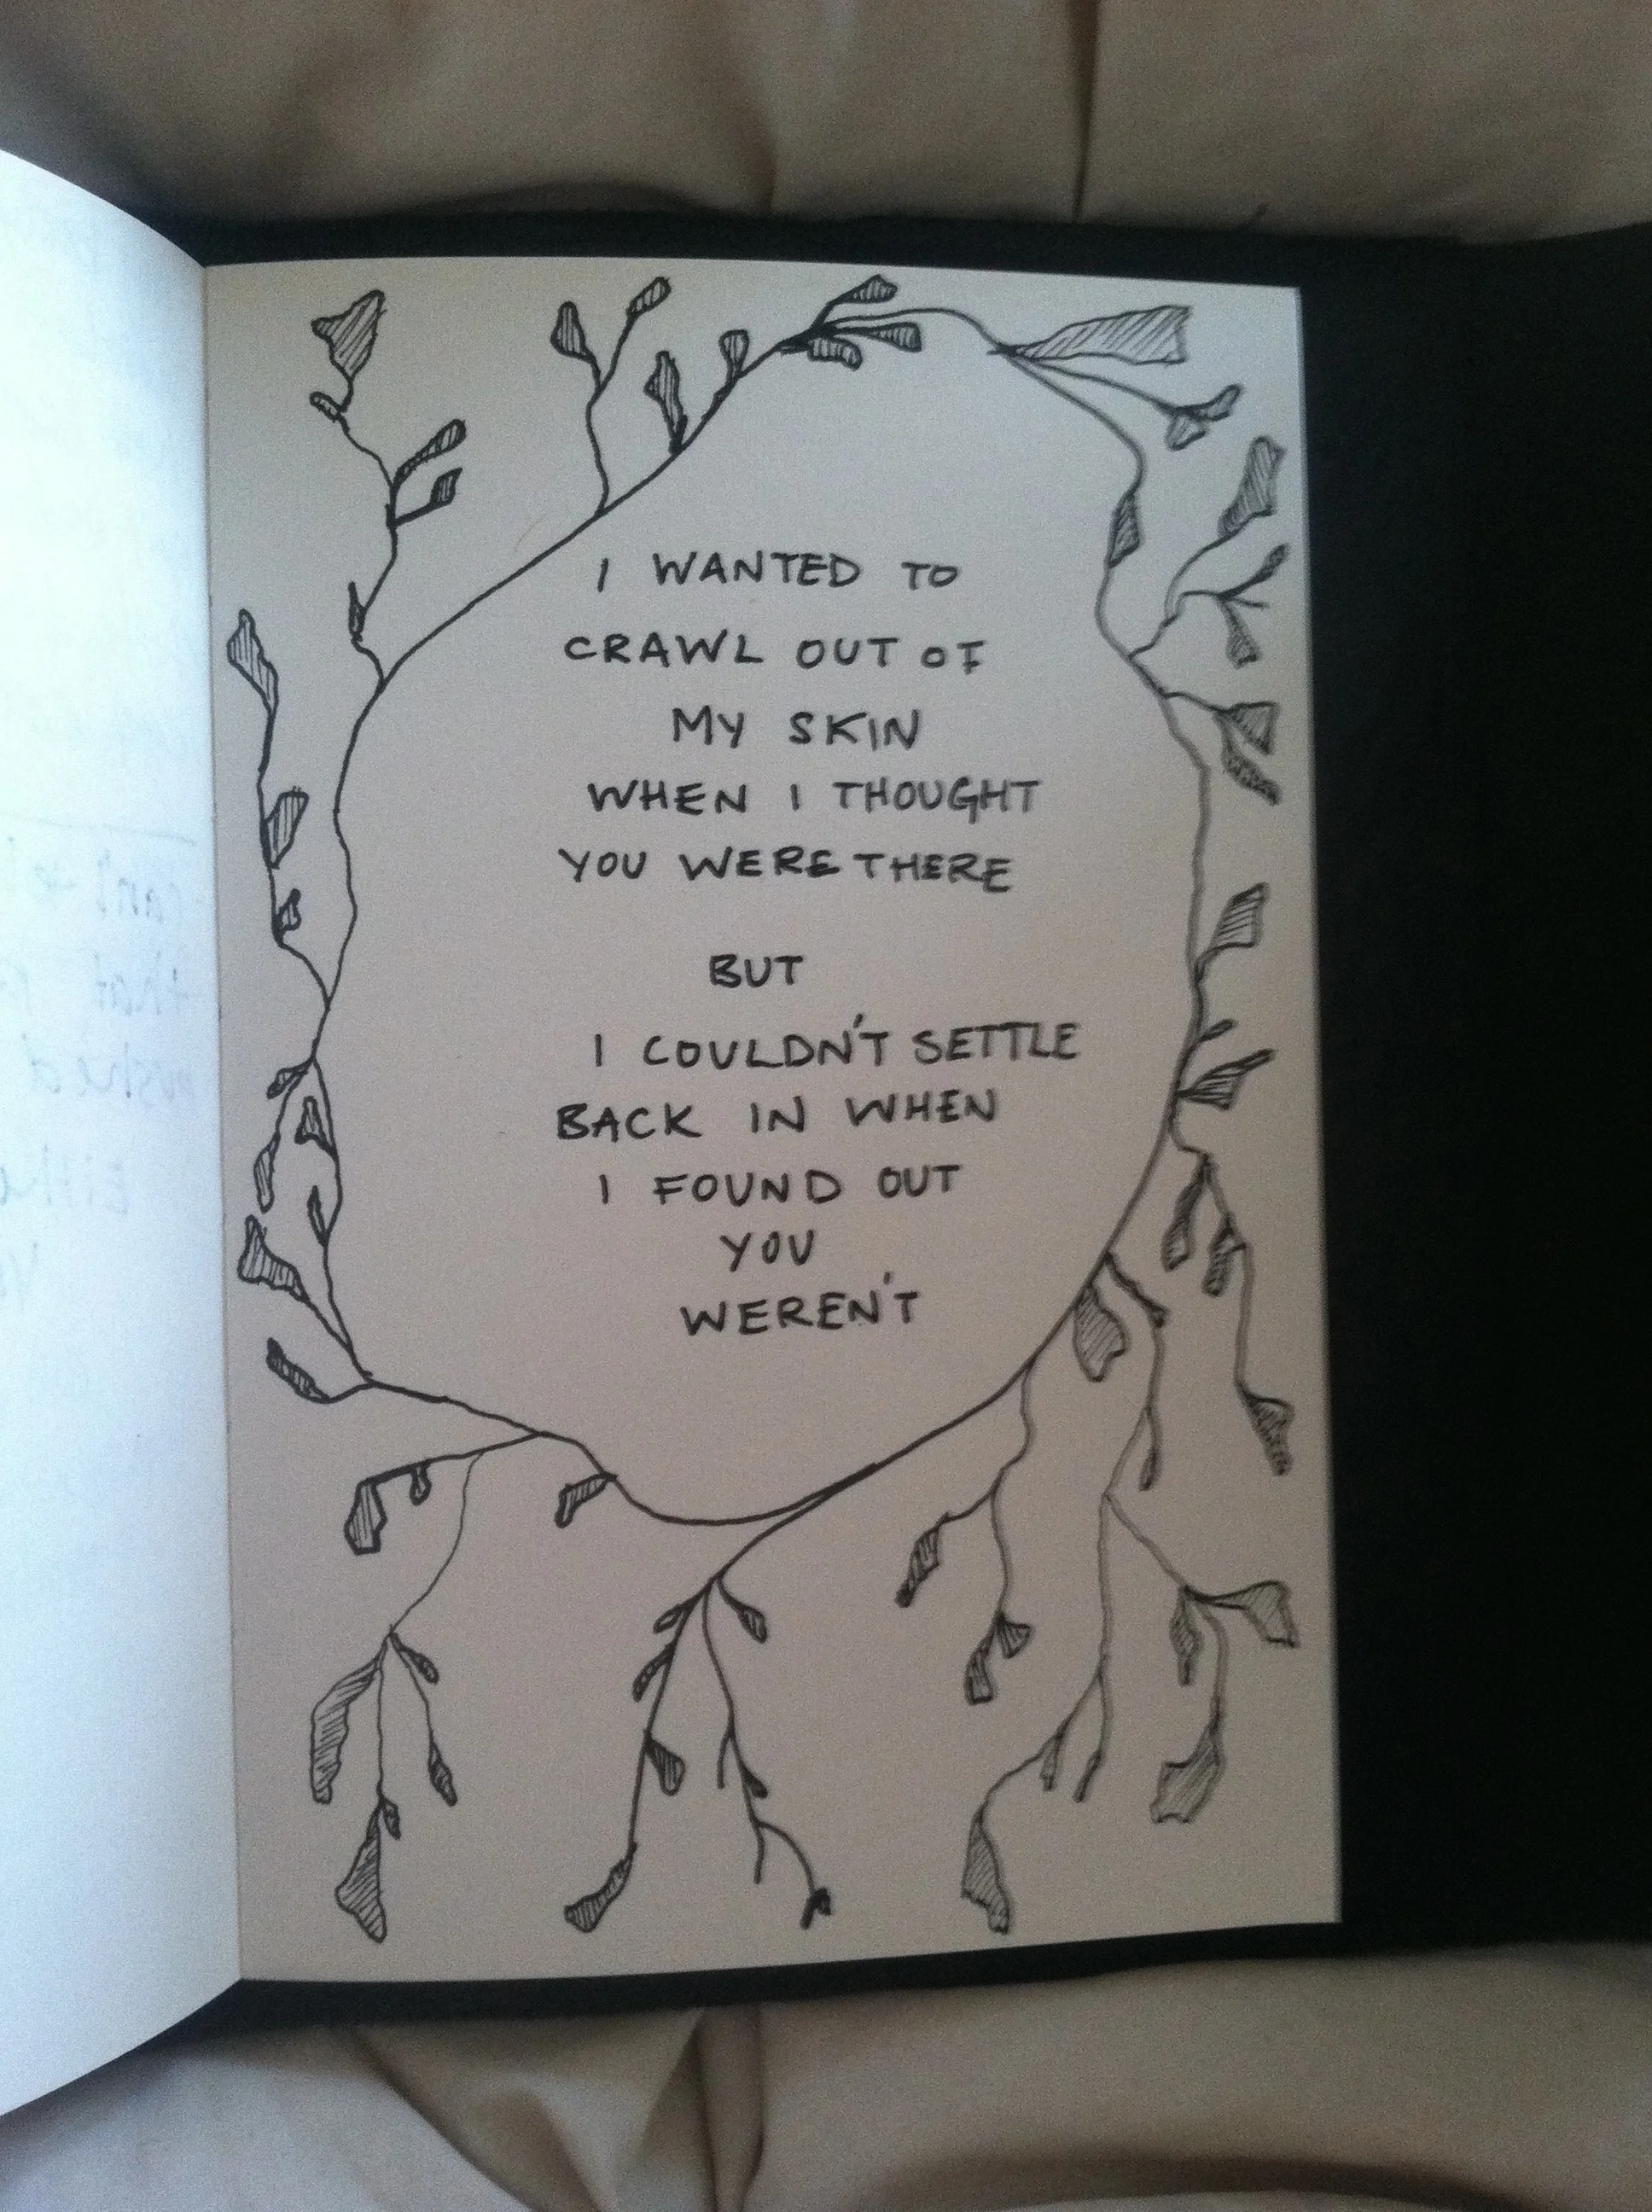 I WANTED TO
CRAWL OUT OF
MY SKIN
WHEN I THOUGHT
YOU WERE THERE
BUT
I COULDN'T SETTLE
BACK IN WHEN
I FOUND OUT
YOU
WEREN'T